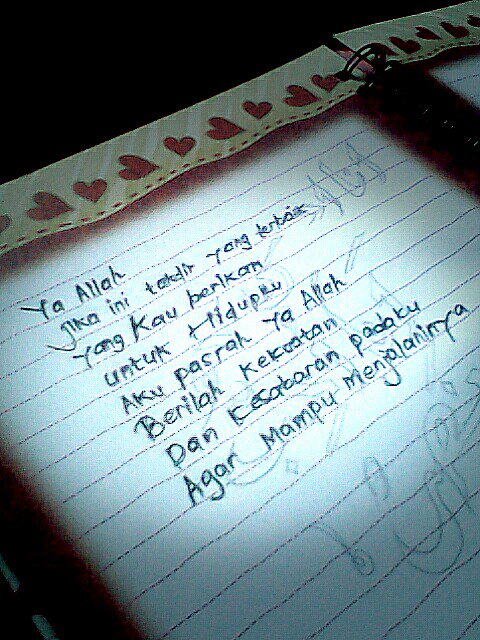 Ya Allah
Jika ini takdir yang terbaik
yang Kau berikan
untuk Hidupku
Aku pasrah Ya Allah
Berilah Kekuatan
Dan Kesabaran padaku
Agar Mampu menjalaninya